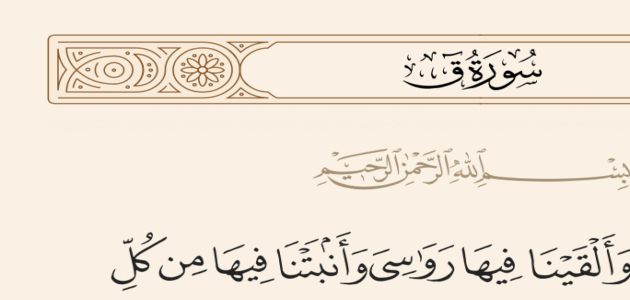 سُورَةُ قٓ
بِسْمِ ٱللَّهِ ٱلرَّحْمَٰنِ ٱلرَّحِيمِ
وَأَلْقَيْنَا فِيهَا رَوَٰسِىَ وَأَنۢبَتْنَا فِيهَا مِن كُلِّ